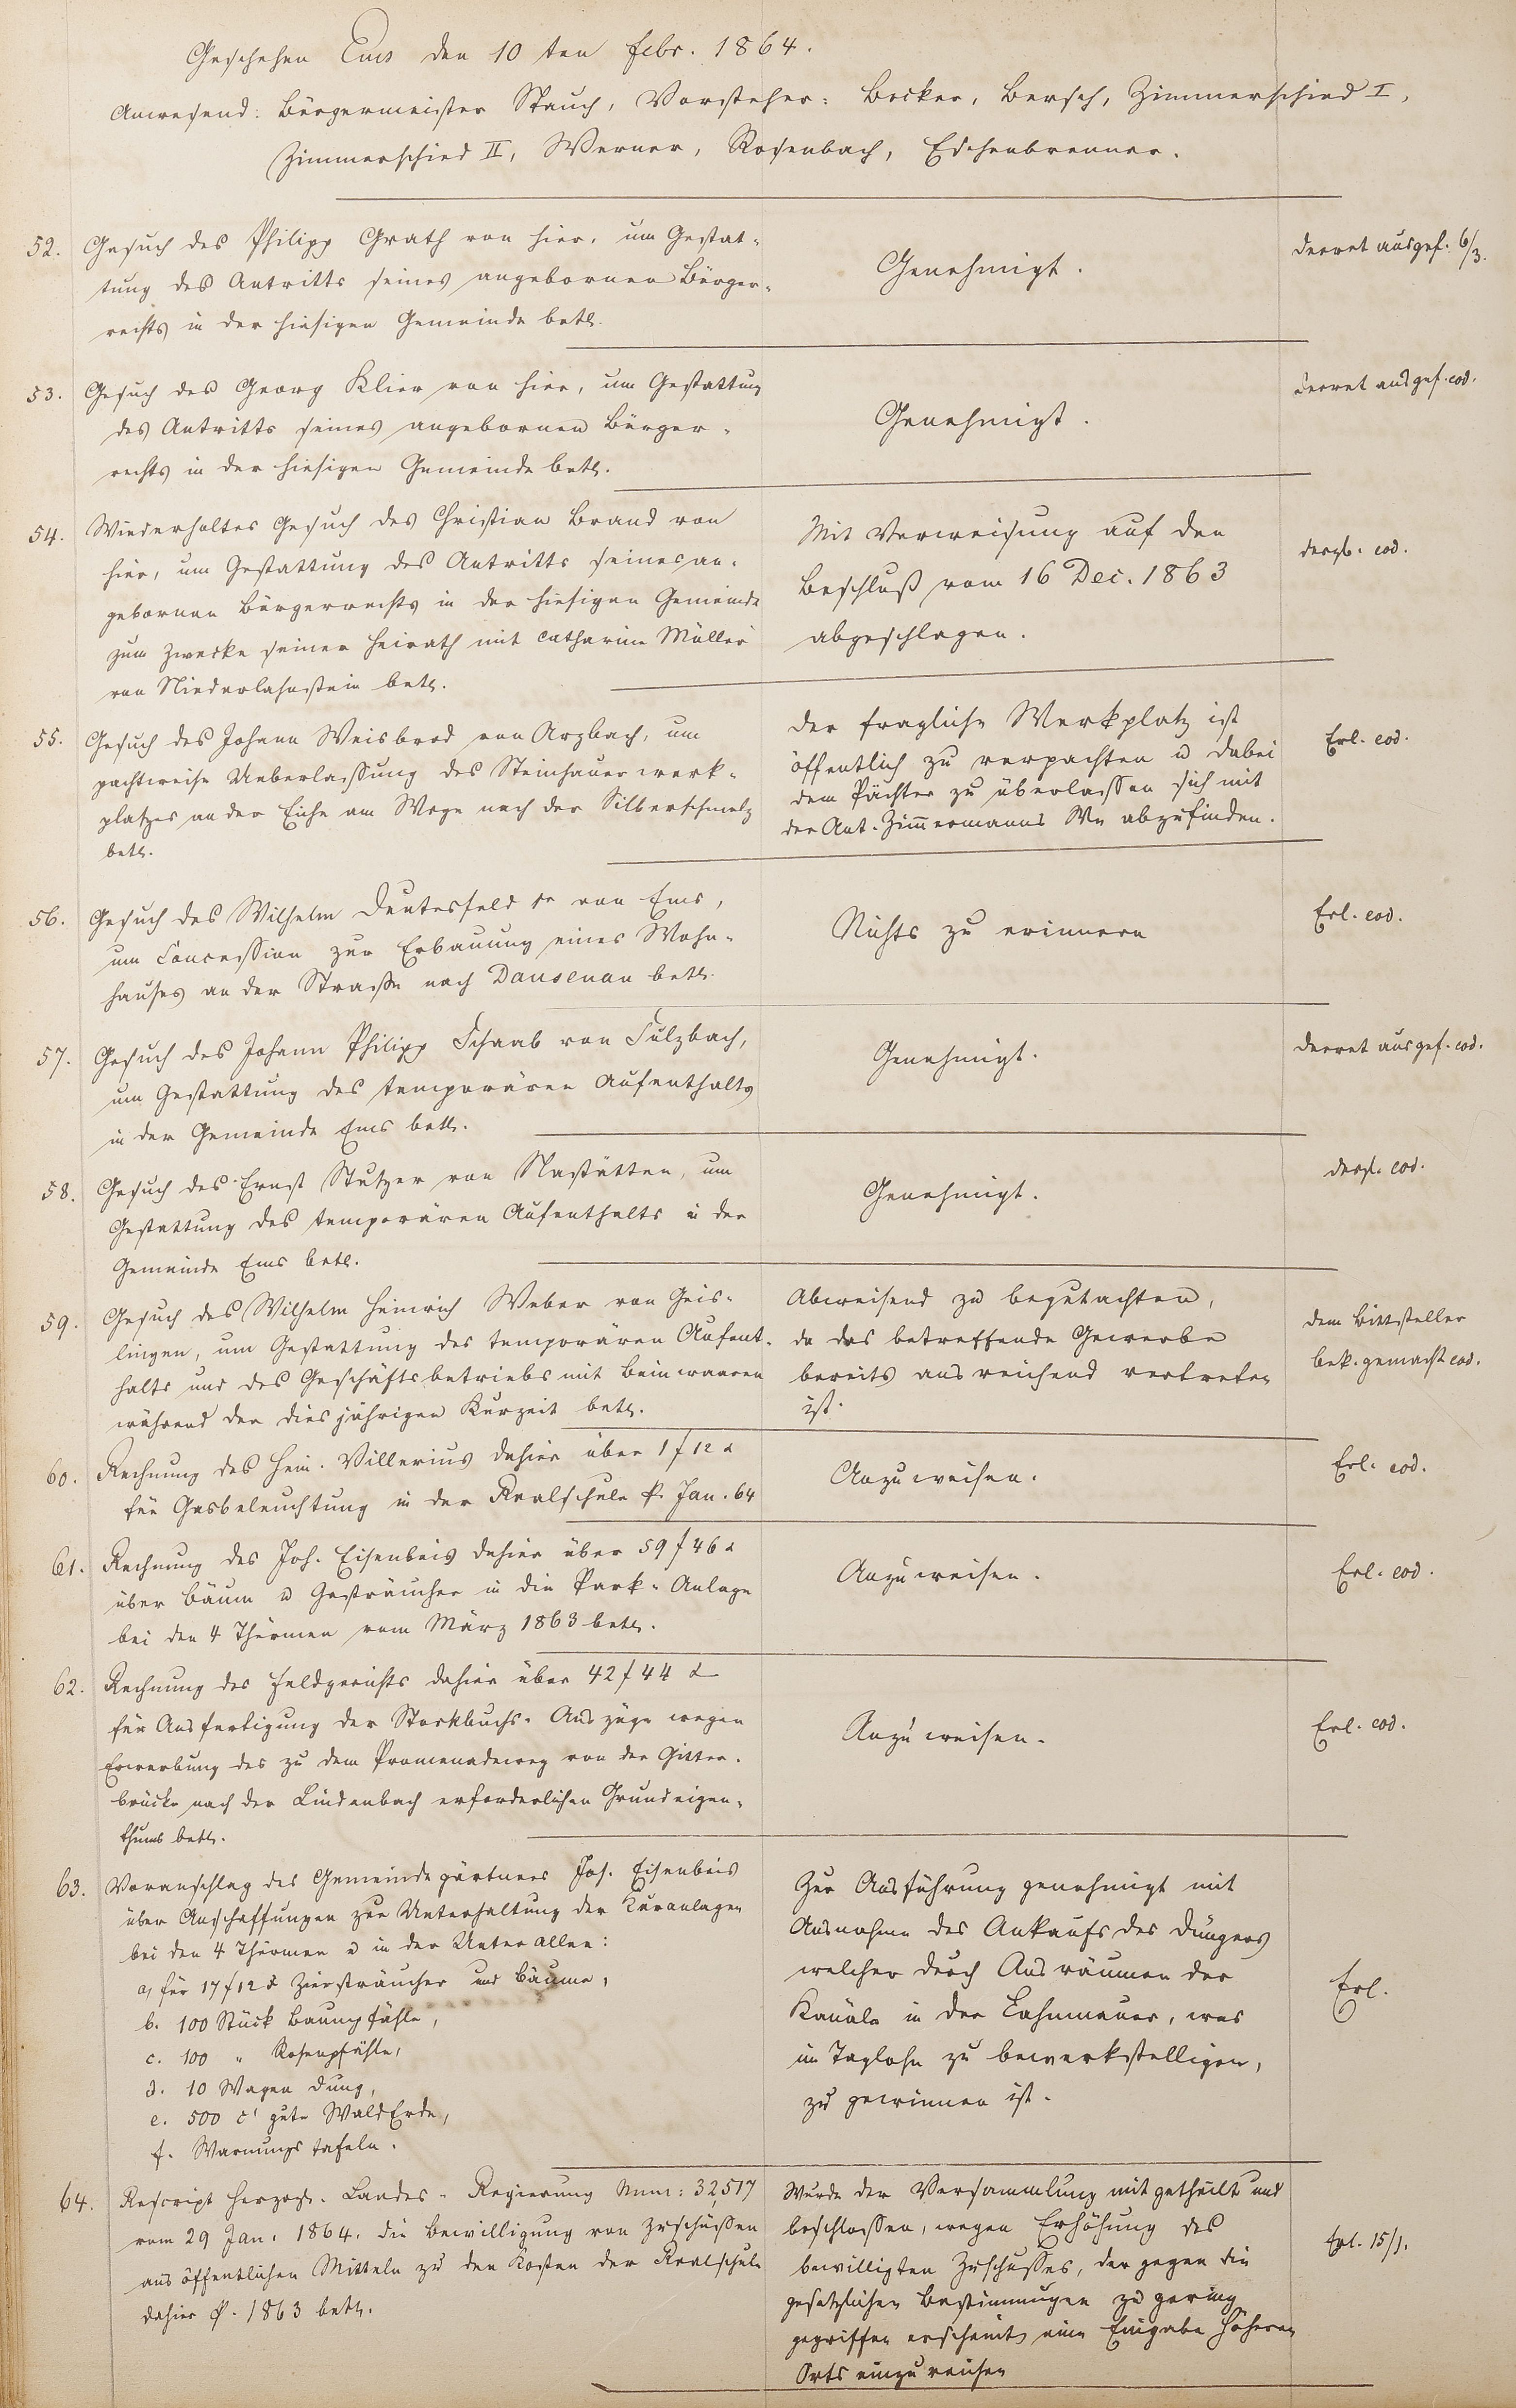 Geschehen Ems den 10 ten Febr. 1864.
Anwesend: Bürgermeister Spauch, Vorsteher: Becker, Bersch, Zimmerschied I,
Zimmerschied II, Werner, Rosenbach, Eschenbrenner.
52. Gesuch des Philipp Grath von hier, um Gestat-
tung des Antritts seines angebornen Bürger-
rechts in der hiesigen Gemeinde betr.
Genehmigt.
Decret ausgef. 6/3.
53. Gesuch des Georg Klier von hier, um Gestattung
des Antritts seines angebornen Bürger-
rechts in der hiesigen Gemeinde betr.
Genehmigt.
Decret ausgef. eod.
54. Wiederholtes Gesuch des Christian Brand von
hier, um Gestattung des Antritts seines an-
gebornen Bürgerrechts in der hiesigen Gemeinde
zum Zwecke seiner Heirath mit Catharine Müller
von Niederlahnstein betr.
Mit Verweisung auf den
Beschluß vom 16 Dec. 1863
abgeschlagen.
desgl. eod.
55. Gesuch des Johann Weisbrod von Arzbach, um
pachtweise Ueberlassung des Steinhauerwerk-
platzes an der Eiche am Wege nach der Silberschmelz
betr.
Der fragliche Werkplatz ist
öffentlich zu verpachten u dabei
dem Pächter zu überlassen sich mit
der Ant. Zimmermanns We abzufinden.
Erl. eod.
56. Gesuch des Wilhelm Deutesfeld von Ems,
um Concession zur Erbauung eines Wohn-
hauses an der Straße nach Dausenau betr.
Nichts zu erinnern
Erl. eod.
57. Gesuch des Johann Philipp Schaab von Sulzbach,
um Gestattung des temporären Aufenthalts
in der Gemeinde Ems betr.
Genehmigt.
Decret ausgef. eod.
58. Gesuch des Ernst Stutzer von Nastätten, um
Gestattung des temporären Aufenthalts in der
Gemeinde Ems betr.
Genehmigt.
desgl. eod.
59. Gesuch des Wilhelm Heinrich Weber von Geis-
lingen, um Gestattung des temporären Aufent-
halts und des Geschäftsbetriebs mit Beinwaaren
während der diesjährigen Kurzeit betr.
Abweisend zu begutachten,
da das betreffende Gewerbe
bereits ausreichend vertreten
ist.
dem Bittsteller
bek. gemacht eod.
60. Rechnung des Hein. Villerius dahier über 1 f 12 x
für Gasbeleuchtung in der Realschule p. Jan. 64
Anzuweisen.
Erl. eod.
61. Rechnung des Joh. Eisenbeis dahier über 59 f 46 x
über Bäum u Gesträucher in die Park-Anlage
bei den 4 Thürmen vom März 1863 betr.
Anzuweisen.
Erl. eod.
62. Rechnung des Feldgerichts dahier über 42 f 44 x
für Ausfertigung der Stockbuchs-Auszüge wegen
Erwerbung des zu dem Promenadeweg von der Gitter-
brücke nach der Lindenbach erforderlichen Grundeigen-
thums betr.
Anzuweisen.
Erl. eod.
63. Voranschlag des Gemeindegärtners Joh. Eisenbeis
über Anschaffungen zur Unterhaltung der Kuranlagen
bei den 4 Thürmen u in der Unterallee:
a, für 17 f 12 x Ziersträucher und Bäume,
b. 100 Stück Baumpfähle,
c. 100 " Rosenpfähle,
d. 10 Wagen Dung,
e. 500 c' gute WaldErde,
f. Warnungstafeln.
Zur Ausführung genehmigt mit
Ausnahme des Ankaufs des Düngers
welcher durch Ausräumen der
Kanäle in der Lahnmauer, was
im Taglohn zu bewerkstelligen,
zu gewinnen ist.
Erl.
64. Rescript Herzogl. Landes-Regierung Num: 32,517
vom 29 Jan. 1864. die Bewilligung von Zuschüssen
aus öffentlichen Mitteln zu den Kosten der Realschule
dahier p. 1863 betr.
Wurde der Versammlung mitgetheilt und
beschlossen, wegen Erhöhung des
bewilligten Zuschusses, der gegen die
gesetzlichen Bestimmungen zu gering
gegriffen erscheint, eine Eingabe höheren
Orts einzureichen
Erl. 15/3.